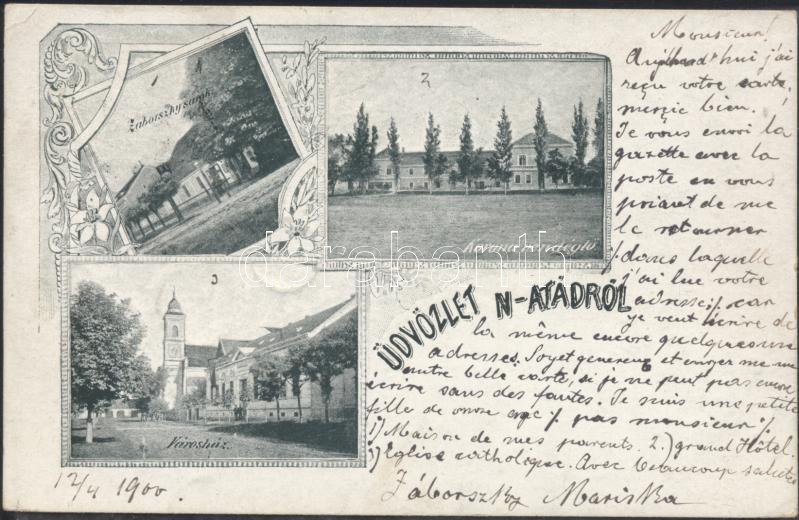 1
Zaborszky sarok
2
Korona vendéglő
3
Városház.
ÜDVÖZLET N-ATÁDRÓL
12/4 1900.
Monsieur!
Aujhurd'hui j'ai
reçu votre carte,
merçie bien.
Je vous envoi la
gazette avec la
poste en vous
priant de me
le retourner
dans laquelle
j'ai lue votre
adresse; car
je veut écrire de
la même encore quelquesune
adresses. Soyet genereux et envoyer me une
autre belle carte, si je ne peut pas encore
écrire sans des fautes. Je suis une petite
fille de onze ans pas monsieur
1) Maison de mes parents. 2.) grand Hôtel.
3) Eglise catholique. Avec beaucoup salutes
Záborszky Mariska
darabanth